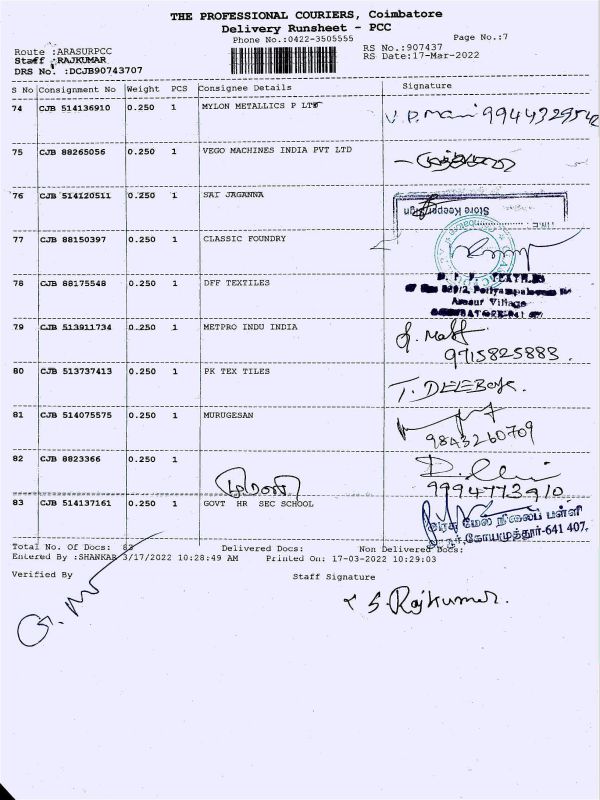 THE PROFESSIONAL COURIERS, Coimbatore
Delivery Runsheet - PCC
Phone No.:0422-3505555
Page No.:7
Route :ARASURPCC
RS No.:907437
Staff :RAJKUMAR
RS Date:17-Mar-2022
DRS No. :DCJB90743707
S No Consignment No Weight PCS Consignee Details Signature
74 CJB 514136910 0.250 1 MYLON METALLICS P LTD V.P.Mani 9944329542
75 CJB 88265056 0.250 1 VEGO MACHINES INDIA PVT LTD
76 CJB 514120511 0.250 1 SAI JAGANNA
Store Keeper Sign
77 CJB 88150397 0.250 1 CLASSIC FOUNDRY
78 CJB 88175548 0.250 1 DFF TEXTILES
TEXTILES
Arasur Village
79 CJB 513911734 0.250 1 METPRO INDU INDIA
9715825883.
80 CJB 513737413 0.250 1 PK TEX TILES
81 CJB 514075575 0.250 1 MURUGESAN
9843260709
82 CJB 8823366 0.250 1
9994773910
83 CJB 514137161 0.250 1 GOVT HR SEC SCHOOL
அரசு மேல் நிலைப் பள்ளி
கோயமுத்தூர்-641 407.
Total No. Of Docs: 83 Delivered Docs: Non Delivered Docs:
Entered By :SHANKAR 3/17/2022 10:28:49 AM Printed On: 17-03-2022 10:29:03
Verified By Staff Signature
S. Rajkumar.